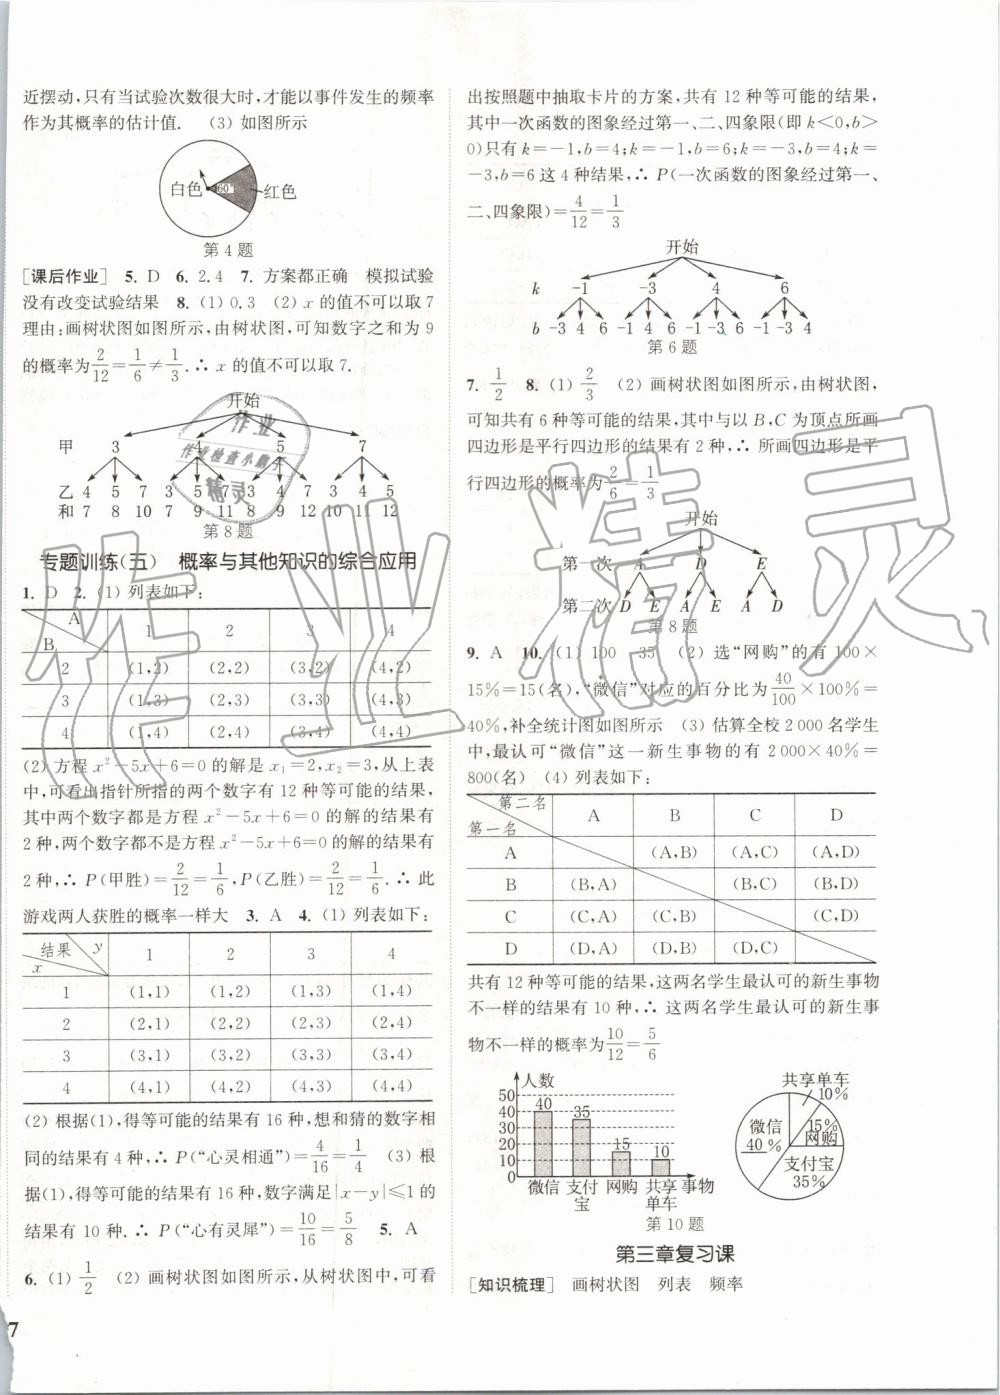 近摆动,只有当试验次数很大时,才能以事件发生的频率
作为其概率的估计值. (3) 如图所示
白色 60° 红色
第 4 题
[课后作业] 5. D 6. 2.4 7. 方案都正确 模拟试验
没有改变试验结果 8. (1) 0.3 (2) x 的值不可以取 7
理由:画树状图如图所示,由树状图,可知数字之和为 9
的概率为 2/12 = 1/6 ≠ 1/3. ∴ x 的值不可以取 7.
开始
甲 3 4 5 7
乙 4 5 7 3 5 7 3 4 7 3 4 5
和 7 8 10 7 9 11 8 9 12 10 11 12
第 8 题
专题训练(五) 概率与其他知识的综合应用
1. D 2. (1) 列表如下:
A
B 1 2 3 4
2 (1,2) (2,2) (3,2) (4,2)
3 (1,3) (2,3) (3,3) (4,3)
4 (1,4) (2,4) (3,4) (4,4)
(2) 方程 x²-5x+6=0 的解是 x₁=2,x₂=3,从上表
中,可看出指针所指的两个数字有 12 种等可能的结果,
其中两个数字都是方程 x²-5x+6=0 的解的结果有
2 种,两个数字都不是方程 x²-5x+6=0 的解的结果有
2 种,∴ P(甲胜)= 2/12 = 1/6,P(乙胜)= 2/12 = 1/6. ∴ 此
游戏两人获胜的概率一样大 3. A 4. (1) 列表如下:
结果 y
x 1 2 3 4
1 (1,1) (1,2) (1,3) (1,4)
2 (2,1) (2,2) (2,3) (2,4)
3 (3,1) (3,2) (3,3) (3,4)
4 (4,1) (4,2) (4,3) (4,4)
(2) 根据(1),得等可能的结果有 16 种,想和猜的数字相
同的结果有 4 种,∴ P(“心灵相通”)= 4/16 = 1/4 (3) 根
据(1),得等可能的结果有 16 种,数字满足|x-y|≤1 的
结果有 10 种. ∴ P(“心有灵犀”)= 10/16 = 5/8 5. A
6. (1) 1/2 (2) 画树状图如图所示,从树状图中,可看
7
出按照题中抽取卡片的方案,共有 12 种等可能的结果,
其中一次函数的图象经过第一、二、四象限(即 k<0,b>
0)只有 k=-1,b=4;k=-1,b=6;k=-3,b=4;k=
-3,b=6 这 4 种结果,∴ P(一次函数的图象经过第一、
二、四象限)= 4/12 = 1/3
开始
k -1 -3 4 6
b -3 4 6 -1 4 6 -1 -3 6 -1 -3 4
第 6 题
7. 1/2 8. (1) 2/3 (2) 画树状图如图所示,由树状图,
可知共有 6 种等可能的结果,其中与以 B,C 为顶点所画
四边形是平行四边形的结果有 2 种,∴ 所画四边形是平
行四边形的概率为 2/6 = 1/3
开始
第一次 A D E
第二次 D E A E A D
第 8 题
9. A 10. (1) 100 35 (2) 选“网购”的有 100×
15%=15(名),“微信”对应的百分比为 40/100 ×100%=
40%,补全统计图如图所示 (3) 估算全校 2 000 名学生
中,最认可“微信”这一新生事物的有 2 000×40%=
800(名) (4) 列表如下:
第二名
第一名 A B C D
A (A,B) (A,C) (A,D)
B (B,A) (B,C) (B,D)
C (C,A) (C,B) (C,D)
D (D,A) (D,B) (D,C)
共有 12 种等可能的结果,这两名学生最认可的新生事物
不一样的结果有 10 种,∴ 这两名学生最认可的新生事
物不一样的概率为 10/12 = 5/6
人数
50
40
30
20
10
40 35 15 10
微信 支付宝 网购 共享单车 事物
共享单车 10%
微信 40%
15% 网购
支付宝 35%
第 10 题
第三章复习课
[知识梳理] 画树状图 列表 频率
作业
作业检查小助手
精灵
作业精灵